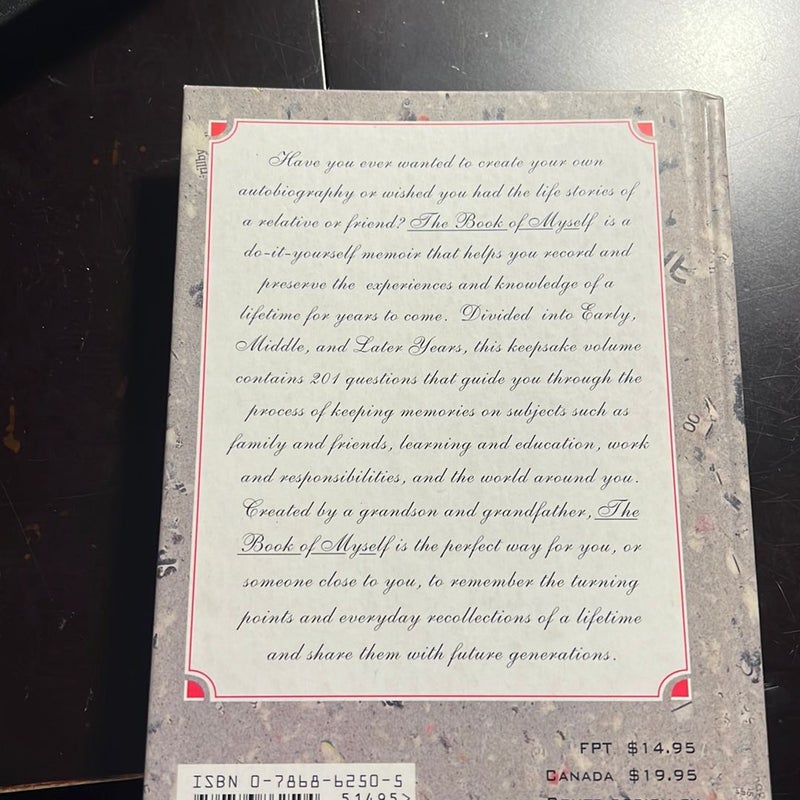 Have you ever wanted to create your own
autobiography or wished you had the life stories of
a relative or friend? The Book of Myself is a
do-it-yourself memoir that helps you record and
preserve the experiences and knowledge of a
lifetime for years to come. Divided into Early,
Middle, and Later Years, this keepsake volume
contains 201 questions that guide you through the
process of keeping memories on subjects such as
family and friends, learning and education, work
and responsibilities, and the world around you.
Created by a grandson and grandfather, The
Book of Myself is the perfect way for you, or
someone close to you, to remember the turning
points and everyday recollections of a lifetime
and share them with future generations.
FPT $14.95
CANADA $19.95
ISBN 0-7868-6250-5
51495>